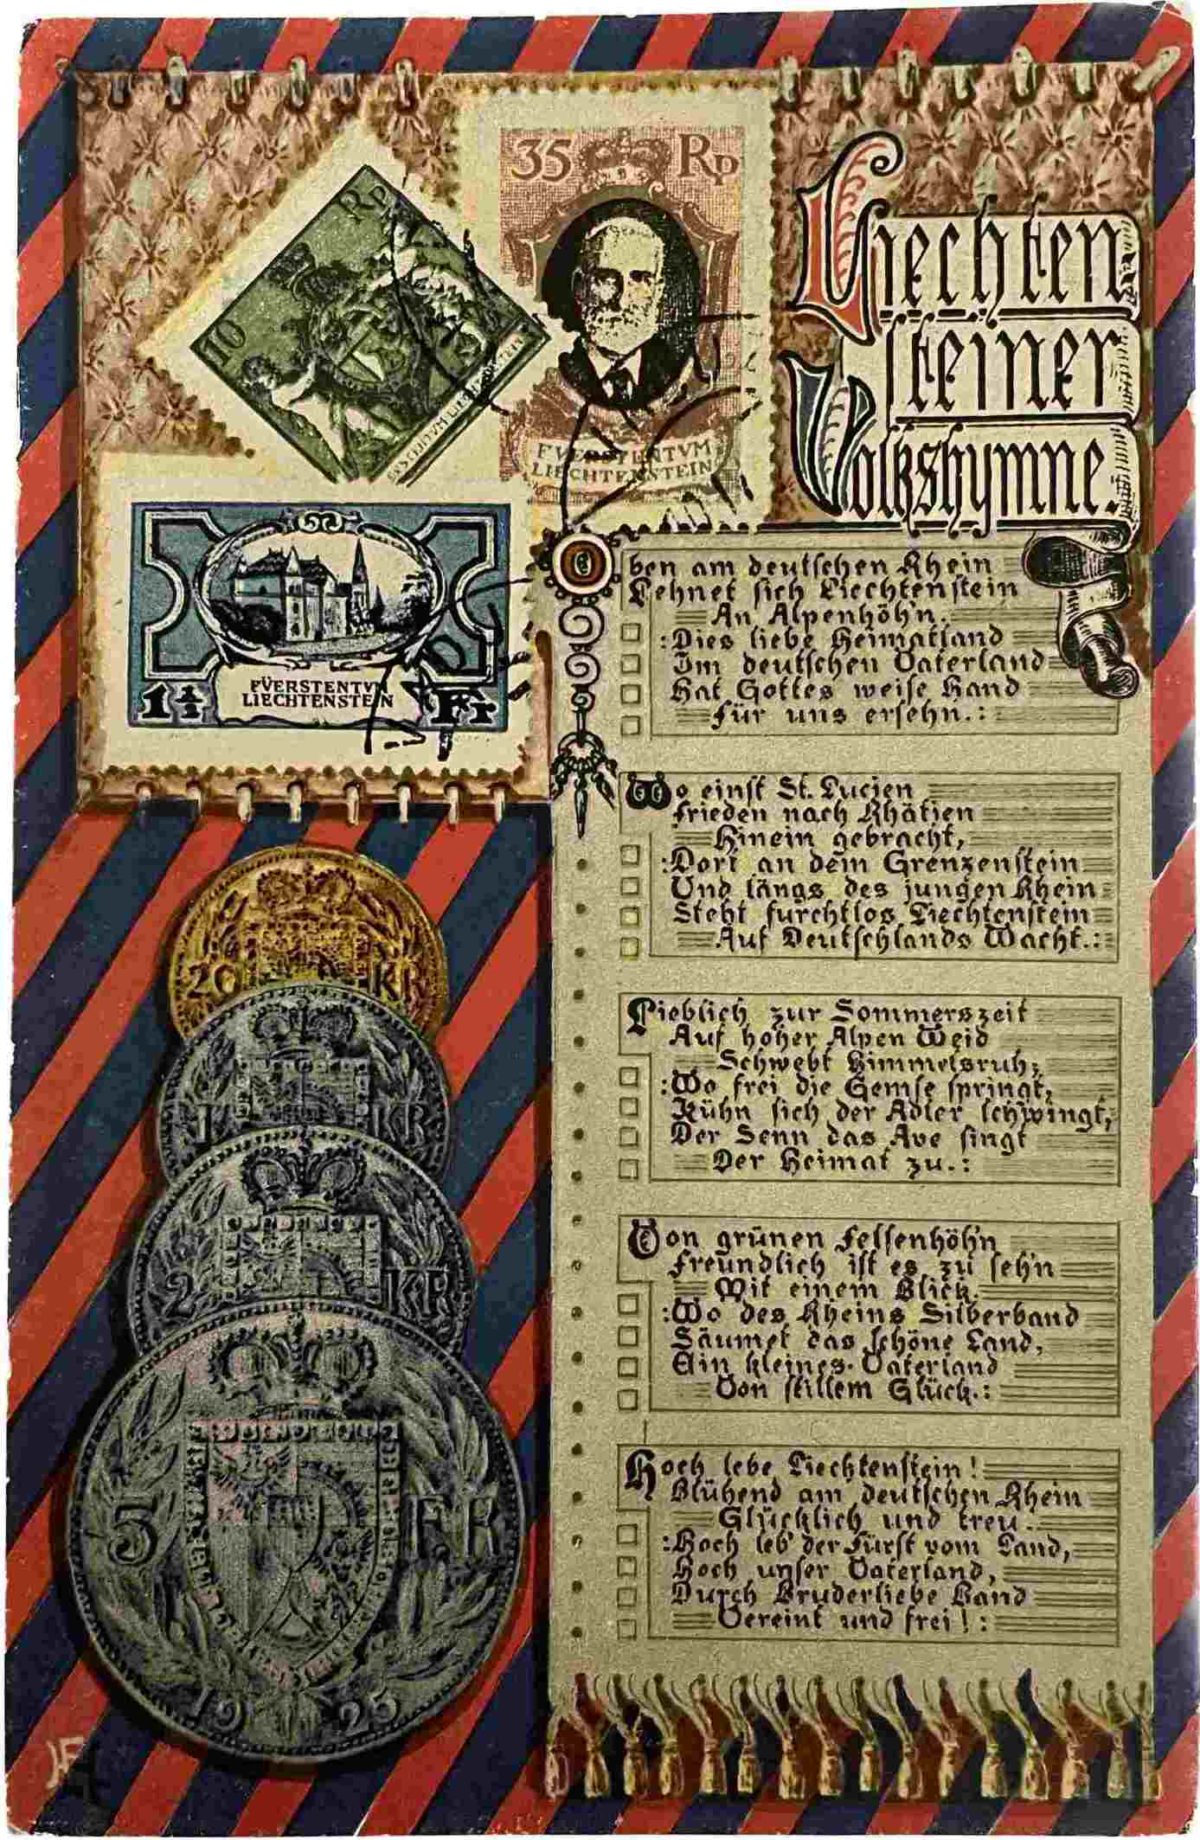 35 Rp
10 Rp
FVERSTENTVM
LIECHTENSTEIN
1½ Fr
FÜERSTENTV
LIECHTENSTEIN
Liechten
steiner
Volkshymne.
Oben am deutschen Rhein
Lehnet sich Liechtenstein
An Alpenhöh'n.
:Dies liebe Heimatland
Im deutschen Vaterland
Hat Gottes weise Hand
Für uns ersehn.:
Wo einst St. Lucien
Frieden nach Rhätien
Hinein gebracht,
:Dort an dem Grenzenstein
Und längs des jungen Rhein
Steht furchtlos Liechtenstein
Auf Deutschlands Wacht.:
Lieblich zur Sommerszeit
Auf hoher Alpen Weid
Schwebt Himmelsruh;
:Wo frei die Gemse springt,
Kühn sich der Adler schwingt,
Der Senn das Ave singt
Der Heimat zu.:
Von grünen Felsenhöh'n
Freundlich ist es zu seh'n
Mit einem Blick.
:Wo des Rheins Silberband
Säumet das schöne Land,
Ein kleines Vaterland
Von stillem Glück.:
Hoch lebe Liechtenstein!
Blühend am deutschen Rhein
Glücklich und treu.
:Hoch leb' der Fürst vom Land,
Hoch unser Vaterland,
Durch Bruderliebe Band
Vereint und frei!:
20 KR
1 KR
2 KR
5 FR
1925